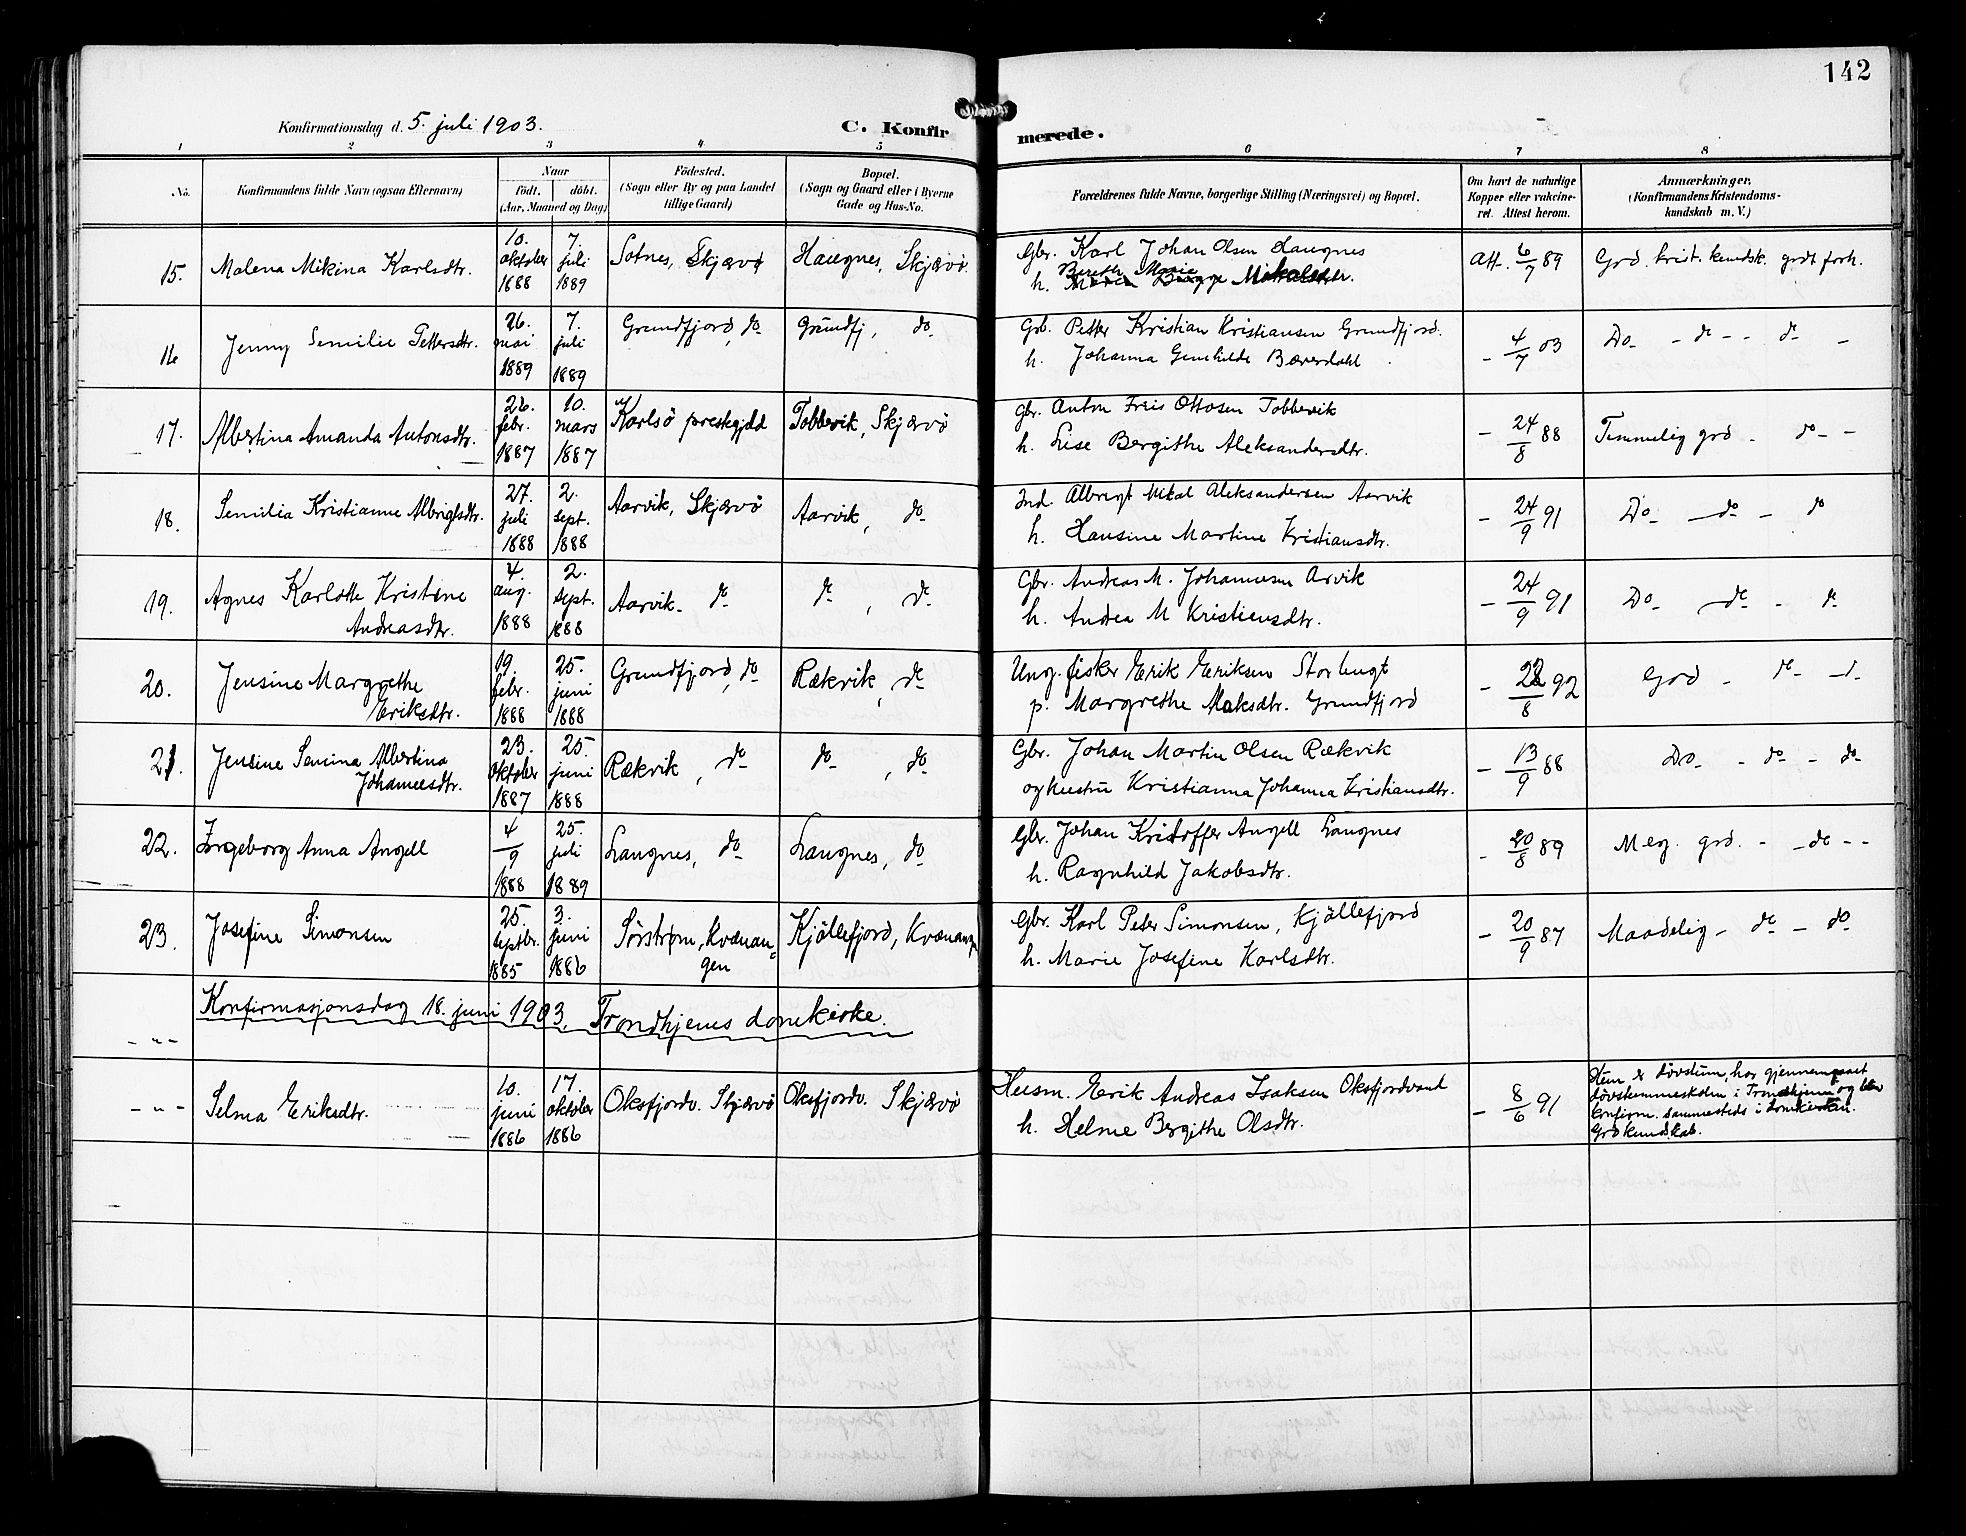 142
Konfirmationsdag d. 5. juli 1903.
C. Konfir
merede.
1 2 3 4 5 6 7 8
No.
Konfirmandens fulde Navn (ogsaa Efternavn)
Naar
födt. döbt.
(Aar, Maaned og Dag)
Födested.
(Sogn eller By og paa Landet
tillige Gaard)
Bopæl.
(Sogn og Gaard eller i Byerne
Gade og Hus-No.
Forældrenes fulde Navne, borgerlige Stilling (Næringsvei) og Bopæl.
Om havt de naturlige
Kopper eller vakcine-
ret. Attest herom.
Anmærkninger.
(Konfirmandens Kristendoms-
kundskab m. V.)
15. Malena Mikina Karlsdtr. 10. oktober 1888 7. juli 1889 Sotnes, Skjærvø Haugnes, Skjærvø.
Gbr. Karl Johan Olsen Haugnes
h. Berethe Marie Mikalsdtr.
Att. 6/7 89 God krist. kundsk. godt forh.
16 Jenny Semilie Pettersdtr. 26. mai 1889 7. juli 1889 Grundfjord, do Grundfj, do
Grb. Petter Kristian Kristiansen Grundfjord.
h. Johanna Gunhilde Bæverdahl.
- 4/7 03 Do - do - - do -
17. Albertina Amanda Antonsdtr. 26. febr. 1887 10. mars 1887 Karlsö prestegjeld Tobbevik, Skjærvö
gbr. Anton Freis Ottosen Tobbevik
h. Lise Bergithe Aleksandersdtr.
- 24/8 88 Temmelig god - do - -
18. Semilia Kristianne Albrigtsdtr. 27. juli 1888 2. sept. 1888 Aarvik, Skjærvö Aarvik, do
Ind. Albregt Mikal Aleksandersen Aarvik
h. Hansine Martine Kristiansdtr.
- 24/9 91 Do - do - do
19. Agnes Karlotte Kristine
Andreasdtr.
4. aug. 1888 2. sept. 1888 Aarvik - do do, do
Gbr. Andreas M. Johannesen Arvik
h. Andrea M Kristiansdtr.
- 24/9 91 Do - do - do
20. Jensine Margrethe
Eriksdtr.
19. febr. 1888 25. juni 1888 Grundfjord, do Rækvik, do
Ung. fisker Erik Eriksen Storbugt
p. Margrethe Maksdtr. Grundfjord
- 22/8 92 God - do - d.
21. Jensine Senina Albertina
Johansdtr.
23. oktober 1887 25. juni 1888 Rækvik, do do, do
Gbr. Johan Martin Olsen Rækvik
og hustru Kristianna Johanna Kristiansdtr.
- 13/9 88 Do - do - do
22. Ingeborg Anna Angell 4/9 1888 25. juli 1889 Laugnes, do Laugnes, do
Gbr. Johan Kristoffer Angell Laugnes
h. Ragnhild Jakobsdtr.
- 20/8 89 Meg. god. - - do - -
23. Josefine Simonsen 25. septbr. 1885 3. juni 1886 Sörstrøm, Kvænan-
gen Kjöllefjord, Kvænangn
Gbr. Karl Peter Simonsen, Kjöllefjord
h. Marie Josefine Karlsdtr.
- 20/9 87 Maadelig - do - do
- " - Konfirmasjonsdag 18. juni 1903, Trondhjems domkirke.
- " - Selma Eriksdtr. 10. juni 1886 17. oktober 1886 Oksfjordv. Skjærvö Oksfjordv. Skjærvö
Husm. Erik Andreas Isaksen Oksfjordvand
h. Helme Bergithe Olsdtr.
- 8/6 91
Hun er døvstum, har gjennemgaaet
døvstummeskolen i Trondhjem og blev
konfirm. sammesteds i domkirken.
God kundskab.